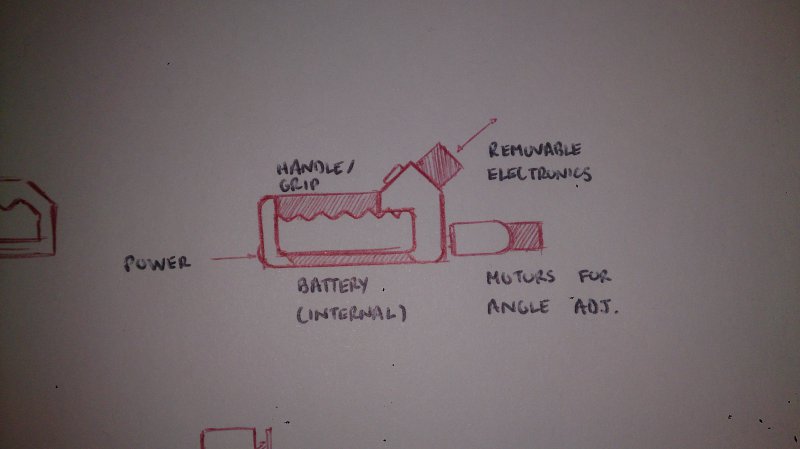 HANDLE/
GRIP
REMOVABLE
ELECTRONICS
POWER
BATTERY
(INTERNAL)
MOTORS FOR
ANGLE ADJ.